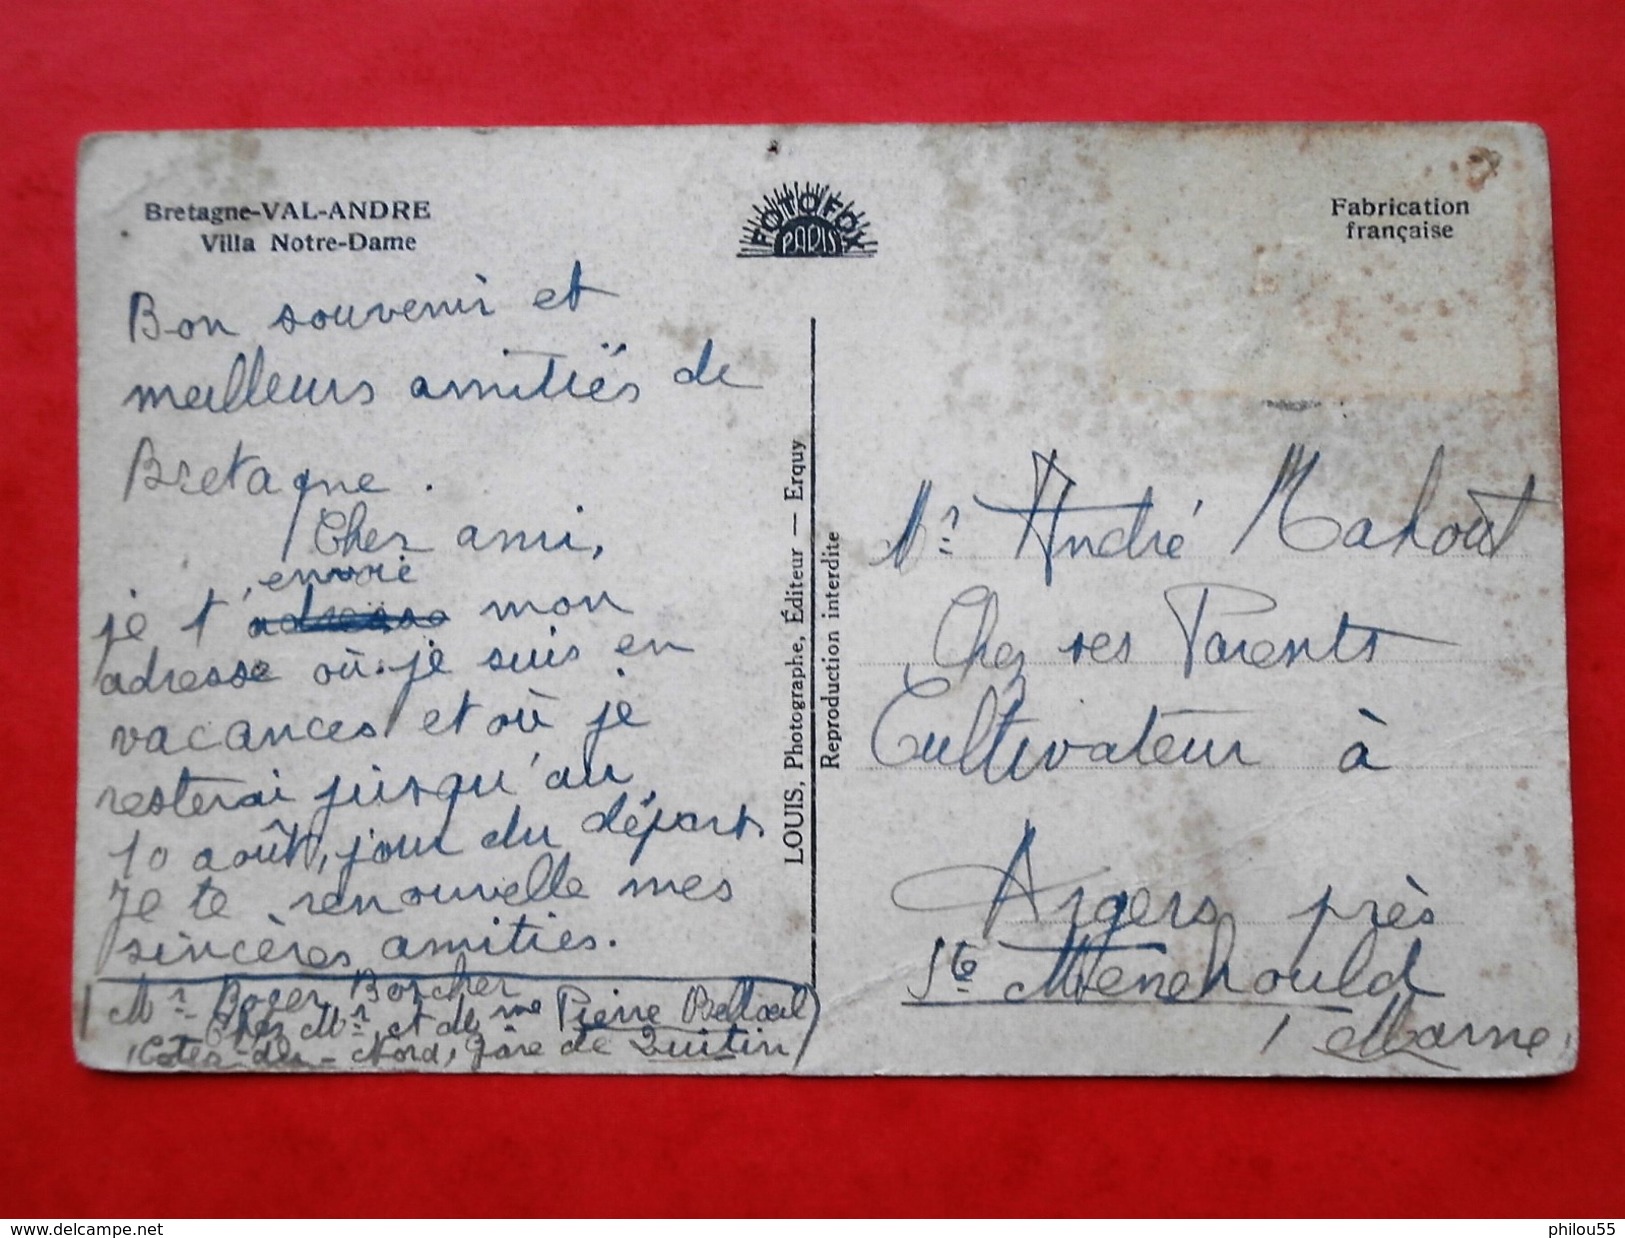 Bretagne-VAL-ANDRE
Villa Notre-Dame
FOTOFOX
PARIS
Fabrication
française
Bon souvenir et
meilleurs amitiés de
Bretagne.
Cher ami,
envoie
je t'adresse mon
adresse où je suis en
vacances et où je
resterai jusqu'au
10 août, jour du départ.
Je te renouvelle mes
sincères amitiés.
Mr. Roger Borcher
Chez Mr. et de Mme Pierre
(Côtes-du-Nord, gare de Quitin)
LOUIS, Photographe, Éditeur — Erquy
Reproduction interdite
Mr. André Mahout
Chez ses Parents
Cultivateur à
Argers près
Ste Menehould
Marne
www.delcampe.net
philou55